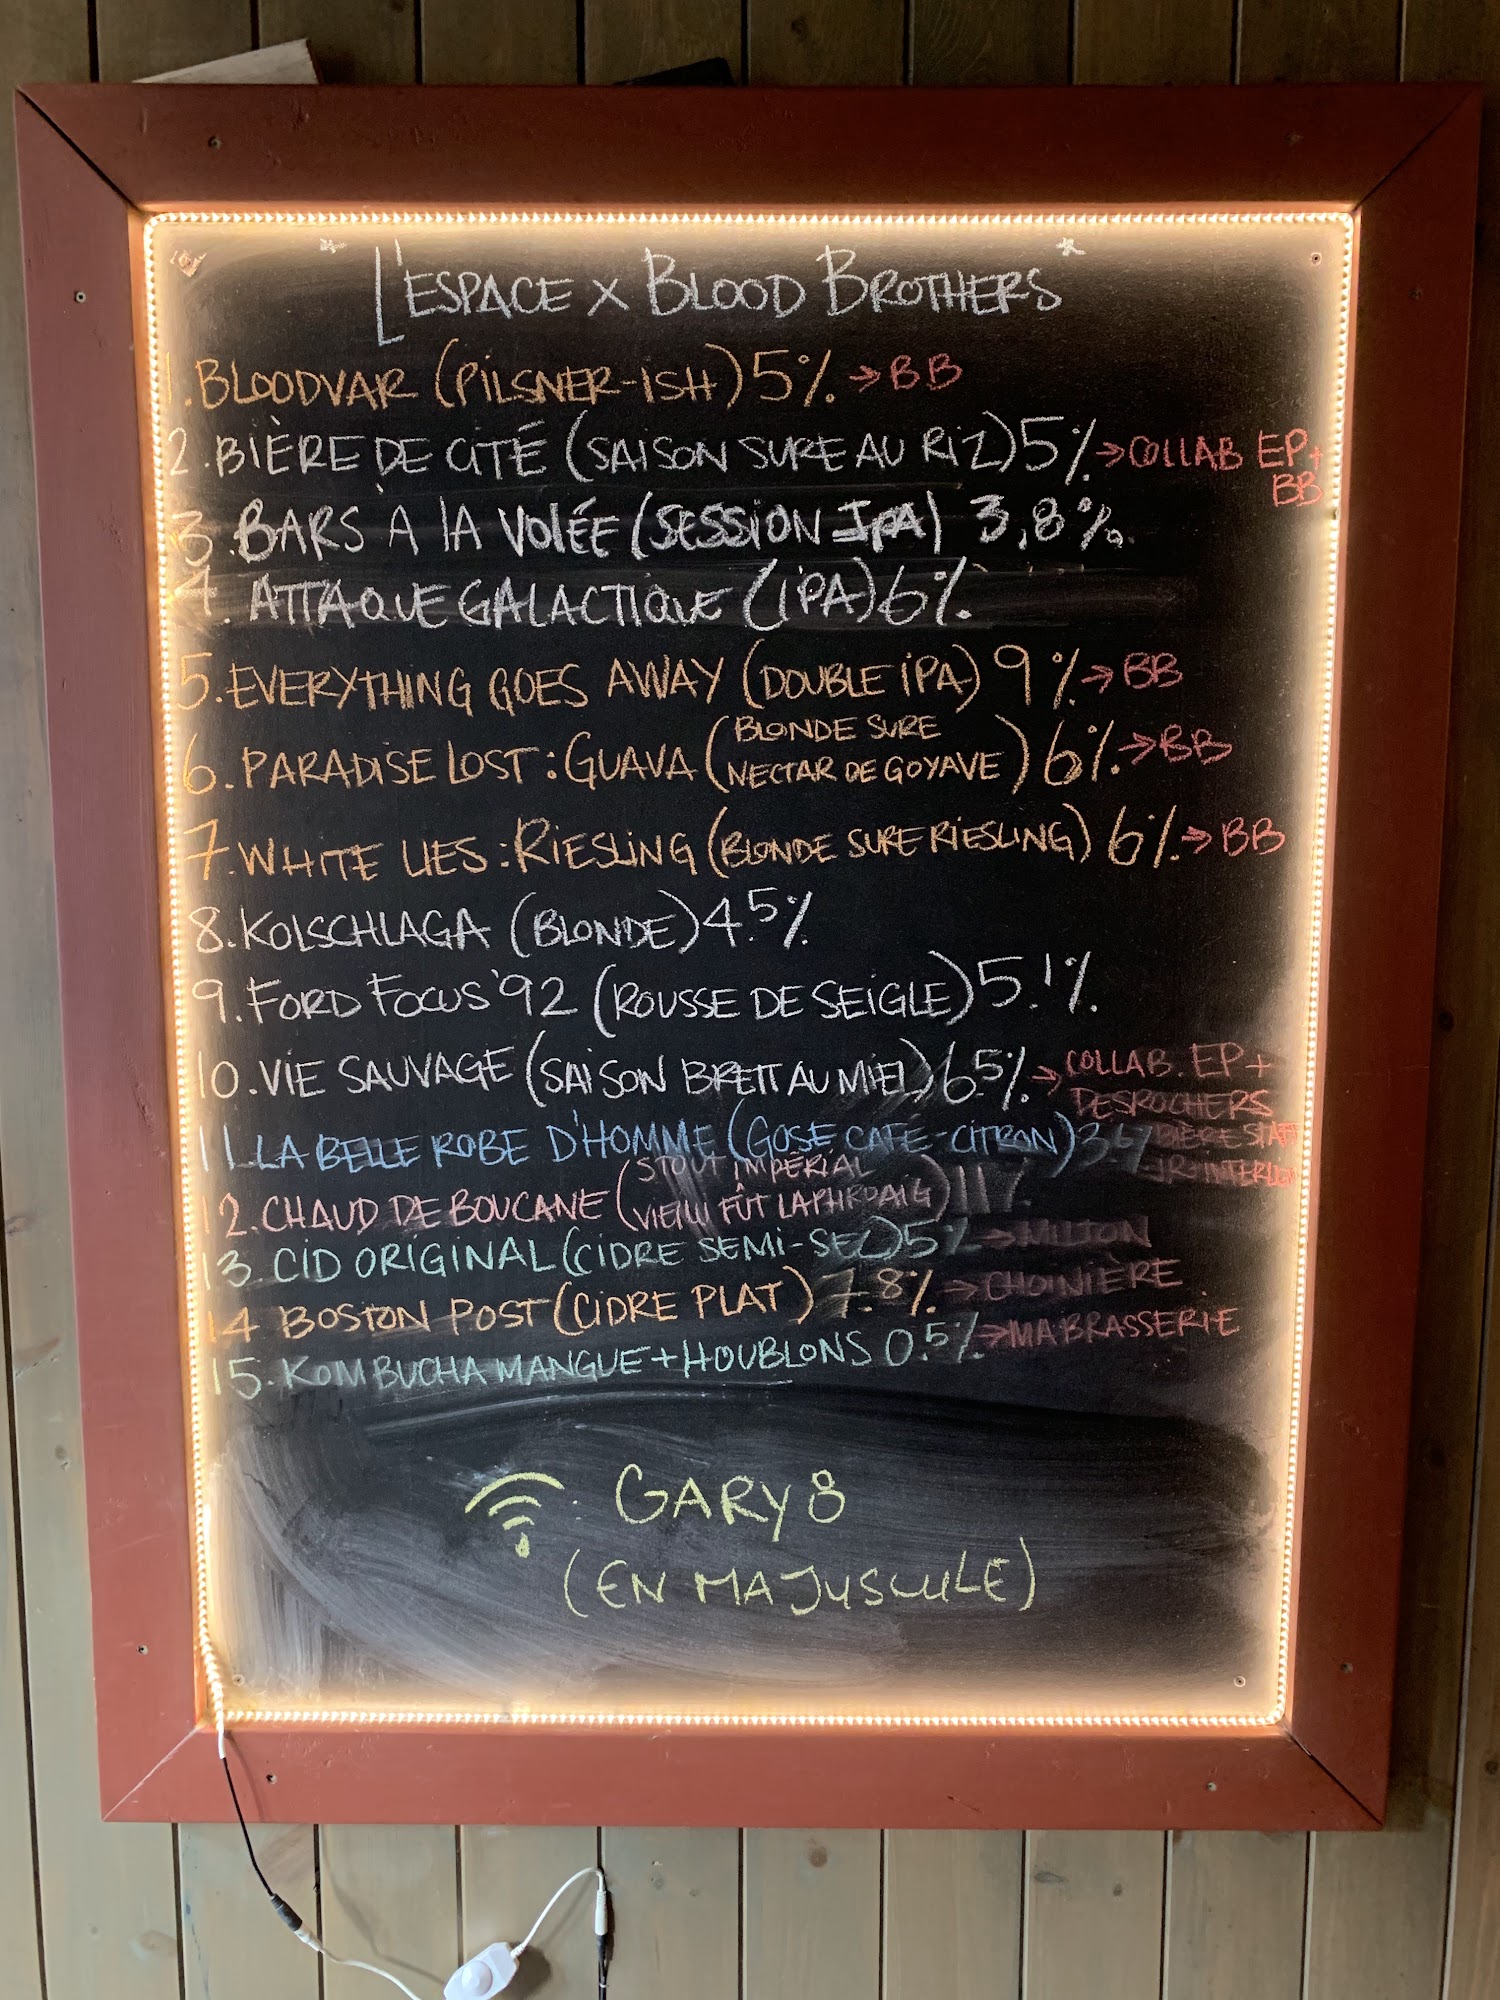 * L'ESPACE X BLOOD BROTHERS *
1. BLOODVAR (PILSNER-ISH) 5% → BB
2. BIÈRE DE CITÉ (SAISON SURE AU RIZ) 5% → COLLAB EP+
BB
3. BARS À LA VOLÉE (SESSION IPA) 3,8%
4. ATTAQUE GALACTIQUE (IPA) 6%
5. EVERYTHING GOES AWAY (DOUBLE IPA) 9% → BB
6. PARADISE LOST: GUAVA (BLONDE SURE
NECTAR DE GOYAVE) 6% → BB
7. WHITE LIES: RIESLING (BLONDE SURE RIESLING) 6% → BB
8. KOLSCHLAGA (BLONDE) 4.5%
9. FORD FOCUS '92 (ROUSSE DE SEIGLE) 5.1%
10. VIE SAUVAGE (SAISON BRETT AU MIEL) 6.5% → COLLAB. EP+
DESROCHERS
11. LA BELLE ROBE D'HOMME (GOSE CAFÉ-CITRON) 3.6% BIÈRE STAFF
12. CHAUD DE BOUCANE (STOUT IMPÉRIAL
VIEILLI FÛT LAPHROAIG) 11%
13. CID ORIGINAL (CIDRE SEMI-SEC) 5% → MILTON
14 BOSTON POST (CIDRE PLAT) 7.8% → CHOINIÈRE
15. KOMBUCHA MANGUE + HOUBLONS 0.5% → MABRASSERIE
GARY8
(EN MAJUSCULE)